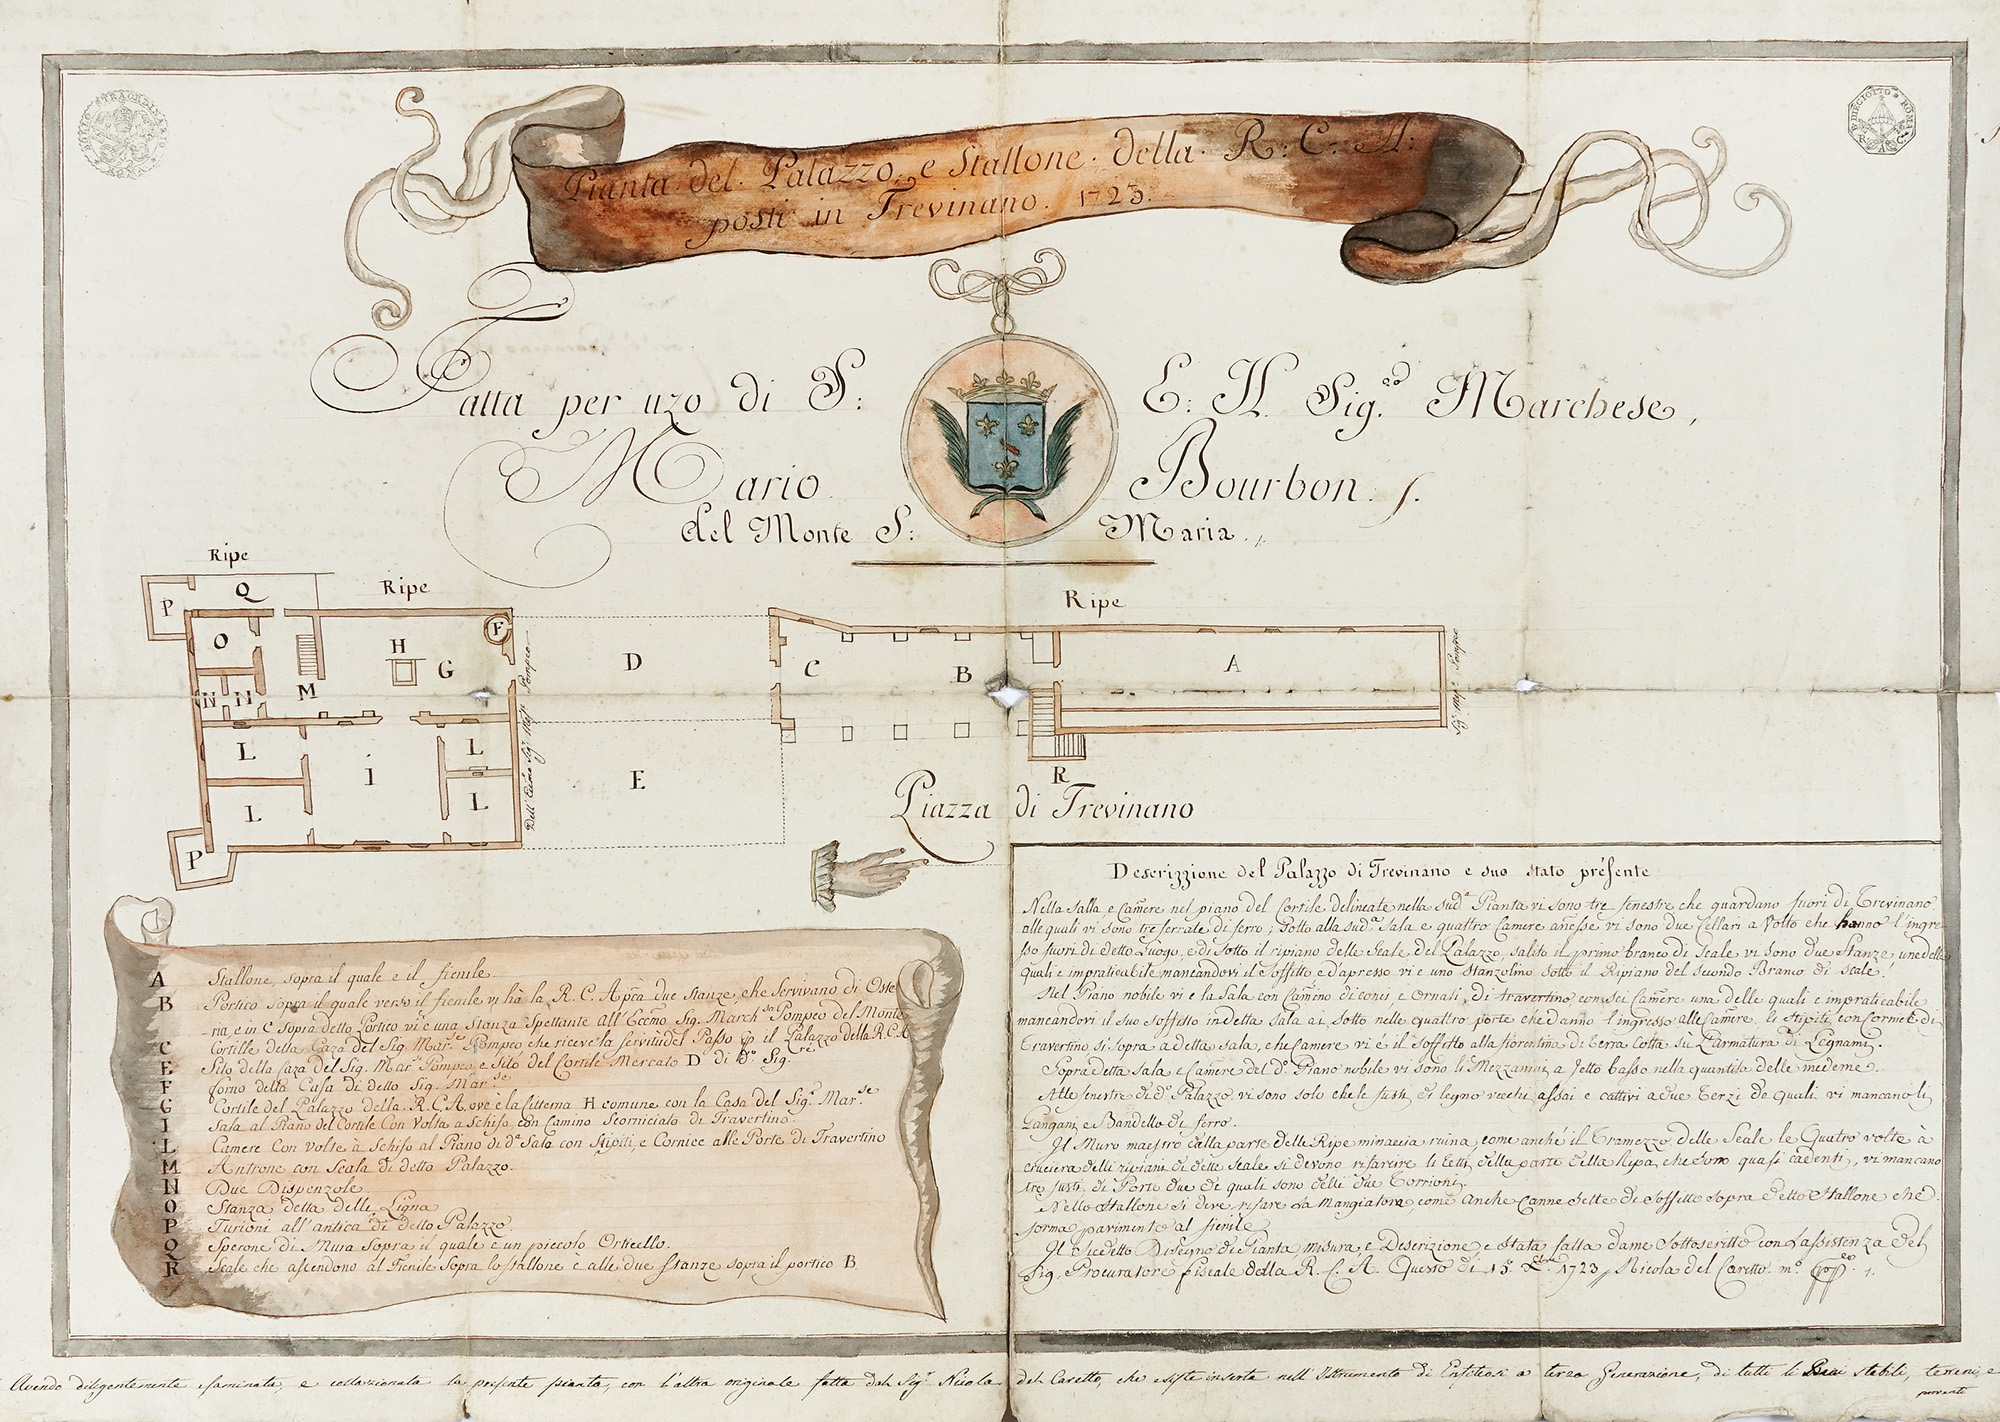 BOLLO STRAORDINARIO ROMA
BDIECIOTTO ROMA
R C A
Pianta del Palazzo, e Stallone della R: C: A:
posti in Trevinano. 1723.
Fatta per uzo di S: E: Il Sig.re Marchese,
Mario Bourbon
del Monte S: Maria.
Ripe
Ripe
Ripe
P Q
O
N N M
H G F
D
C B A
L I L
L L
E
P
R
Dell' Eccmo Sigr Marse Pompeo
Sigr Marse Pompeo
Piazza di Trevinano
A Stallone, sopra il quale e il fienile.
B Portico sopra il quale verso il fienile vi hà la R. C. A pca due stanze, che servivano di Oste
-ria, e in C sopra detto Portico vi e una stanza spettante all' Eccmo Sig. March.se Pompeo del Monte
C Cortille della Caza del Sig. Mar.se Pompeo che riceve la servitù del Passo il Palazzo della R.C.A
E Silo della Caza del Sig. Mar.se Pompeo, e Silo del Cortile Mercato D di do. Sig.re
F forno della Casa di detto Sig. Mar.se
G Cortile del Palazzo della R.C.A. ove è la Citterna H comune con la Casa del Sigr. Mar.se
I Sala al Piano del Cortile Con Volta a Schifo, con Camino Scorniciato di Travertino.
L Camere Con Volte à Schifo al Piano di da. Sala con Stipiti, e Cornice alle Porte di Travertino
M Antrone con Scala di detto Palazzo.
N Due Dispenzole
O Stanza detta delle Ligna
P Turioni all'antica di detto Palazzo.
Q Sperone di Mura Sopra il quale è un piccolo Orticello.
R Scale che ascendono al Fienile Sopra lo stallone e alle due stanze sopra il portico B
Descrizzione del Palazzo di Trevinano e suo stato présente
Nella Salla, e Camere nel piano del Cortile delineate nella suda. Pianta vi sono tre fenestre che guardano fuori di Trevinano
alle quali vi sono tre ferrate di ferro; sotto alla suda. Sala e quattro Camere annesse vi sono due Cellari a Volto che hanno l'ingre
sso fuori di detto Luogo, e di sotto il ripiano delle Scale del Palazzo, salito il primo branco di Scale vi sono due Stanze una delle
quali e impraticabile mancandovi il Soffitto e d'apresso vi e uno Stanzolino sotto il Ripiano del secondo Branco di scale.
Nel Piano nobile vi e la Sala con Camino di conci, e Ornati, di travertino con sei Camere una delle quali e impraticabile
mancandovi il suo soffitto in detta sala ai sotto nelle quattro porte che danno l'ingresso alle Camere, li stipiti con Cornice di
Travertino si sopra a detta sala, che Camere vi e il Soffetto alla fiorentina di terra Cotta su l'armatura di Legnami.
Sopra detta Sala e Camere del do. Piano nobile vi sono li Mezzanini a Tetto basso nella quantità delle medeme.
Alle fenestre di do. Palazzo vi sono solo che le fusti di legno vecchi assai e cattivi a due terzi de quali vi mancano li
Gangani e Bandello di ferro.
Il Muro maestro dalla parte delle Ripe minaccia ruina, come anche il Tramezzo delle Scale le Quatro volte à
cruciera delli ripiani di dette scale si devono risarcire li tetti della parte della Ripa, che sono quasi cadenti, vi mancano
tre fusti di Porte due di quali sono delli due Torrioni.
Nello Stallone si deve rifare la Mangiatora come anche Canne dette di Soffitto sopra detto Stallone che
forma pavimento al fienile
Il Sudetto Disegno di Pianta, misura, e Descrizione e stata fatta dame Sottoscritto con l'assistenza del
Sig. Procuratore fiscale della R. C. A. Questo di 15 1723 Nicola del Caretto
Avendo diligentemente esaminata, e collazionata la presente pianta, con l'altra originale fatta dal Sigr. Nicola del Caretto, che esiste inserta nell' Istrumento di Enfiteosi a terza Generazione, di tutti li Beni stabili, terreni, e
proventi